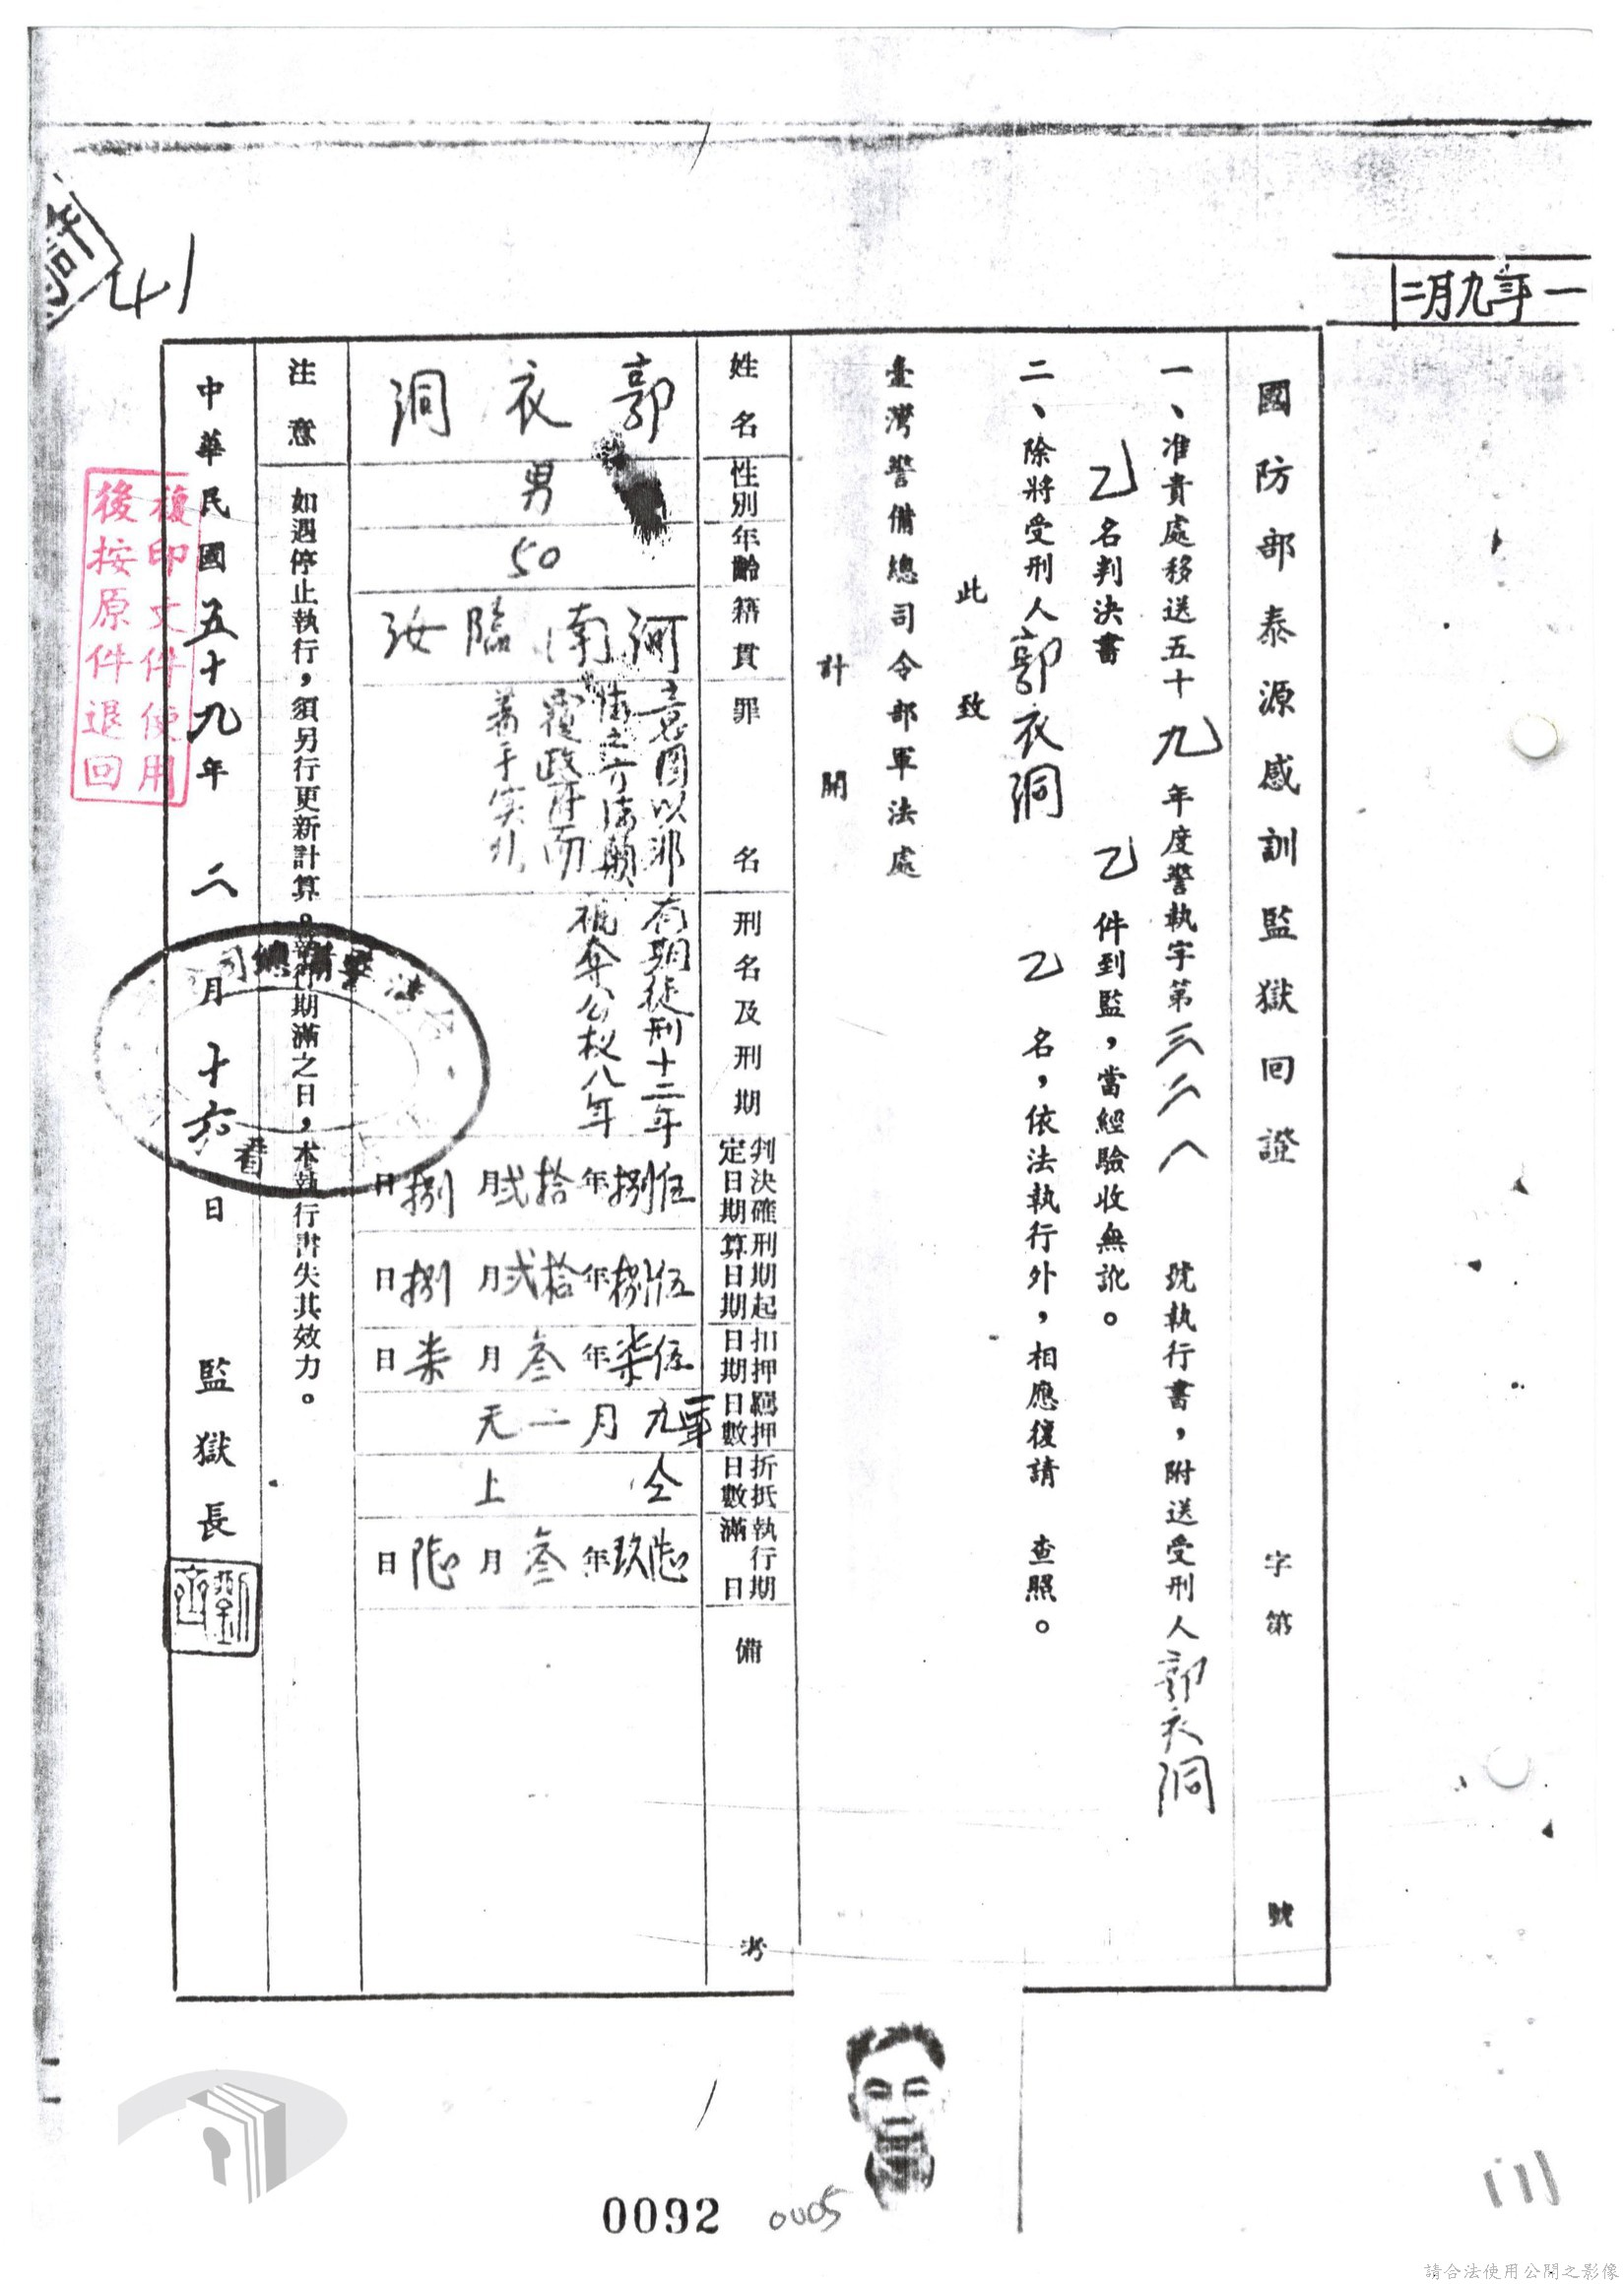 一年九月二
國防部泰源感訓監獄回證 字第 號
一、准貴處移送五十九年度警執字第三二八號執行書,附送受刑人郭衣洞
乙名判決書 乙件到監,當經驗收無訛。
二、除將受刑人郭衣洞 乙名,依法執行外,相應復請 查照。
此致
臺灣警備總司令部軍法處
計開
姓名
郭衣洞
性別
男
年齡
50
籍貫
河南臨汝
罪名
意圖以非
法之方法顛
覆政府而
著手實行
刑名及刑期
有期徒刑十二年
褫奪公權八年
判決確
定日期
伍捌年拾弍月捌日
刑期起
算日期
伍捌年拾弍月捌日
扣押
日期
伍柒年叁月柒日
羈押
日數
一年九月二天
折抵
日數
仝上
執行期
滿日
陸玖年叁月陸日
備考
注意
如遇停止執行,須另行更新計算。執行期滿之日,本執行書失其效力。
中華民國五十九年二月十六日 監獄長
劉
齊
複印文件使用
後按原件退回
41
0092
0005
請合法使用公開之影像